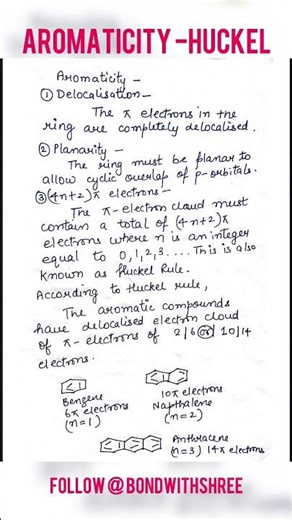 AROMATICITY -HUCKEL
Aromaticity -
① Delocalisation -
The π electrons in the
ring are completely delocalised.
② Planarity -
The ring must be planar to
allow cyclic overlap of p-orbitals.
③ (4n+2)π electrons -
The π-electron cloud must
contain a total of (4n+2)π
electrons where n is an integer
equal to 0,1,2,3.... This is also
known as Huckel Rule.
According to Huckel rule,
The aromatic compounds
have delocalised electron cloud
of π- electrons of 2/6 or 10/14
electrons.
Benzene
6π electrons
(n=1)
10π electrons
Napthalene
(n=2)
Anthracene
(n=3) 14π electrons
FOLLOW @BONDWITHSHREE